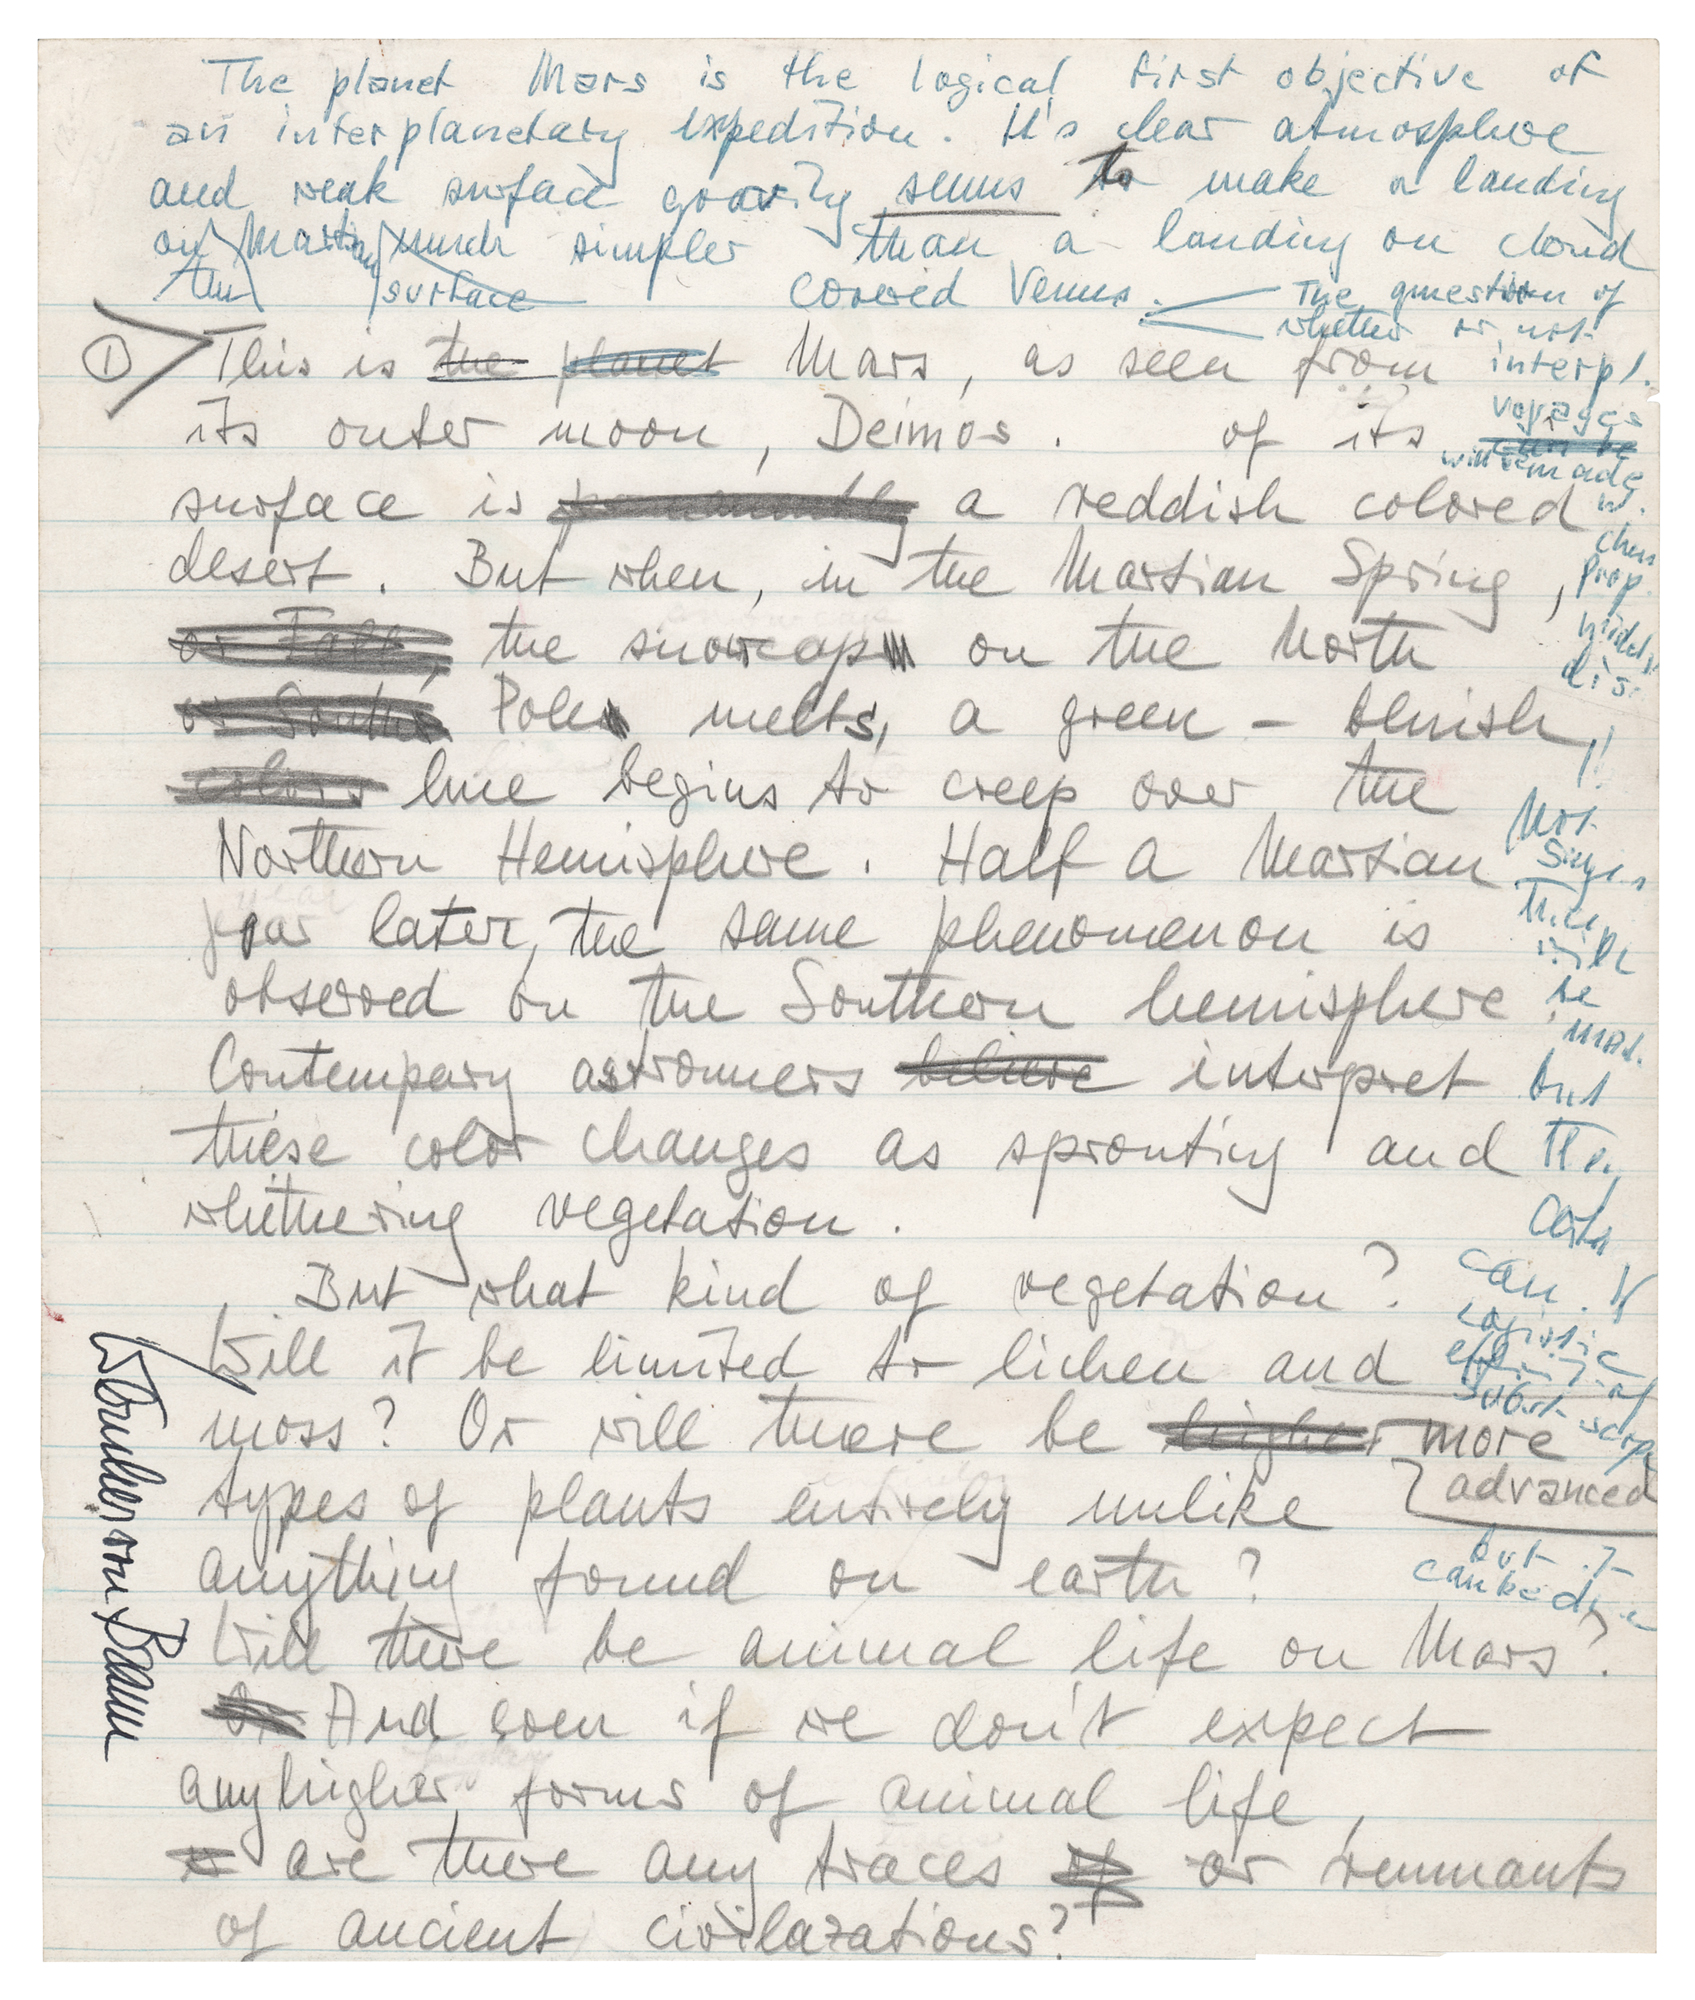 The planet Mars is the logical first objective of
an interplanetary expedition. It's clear atmosphere
and weak surface gravity seems to make a landing
on Martian much simpler than a landing on cloud
the surface covered Venus. The question of
whether or not
① This is the planet Mars, as seen from interpl.
its outer moon, Deimos. of its voyages
will be made
surface is a reddish colored w.
chem
desert. But when, in the Martian Spring, prop.
or Fall, the snowcap on the North
or South Pole melts, a green - bluish !!
colors hue begins to creep over the
Northern Hemisphere. Half a Martian Not
year later, the same phenomenon is
observed on the Southern hemisphere be
Contempary astronomers believe interpret but
these color changes as sprouting and
whithering vegetation.
But what kind of vegetation? can.
Will it be limited to lichen and logistic
moss? Or will there be higher more
types of plants entirely unlike advanced
anything found on earth? but it
can be
Will there be animal life on Mars?
And even if we don't expect
any higher forms of animal life,
or are there any traces of or remnants
of ancient civilazations?
Wernher von Braun